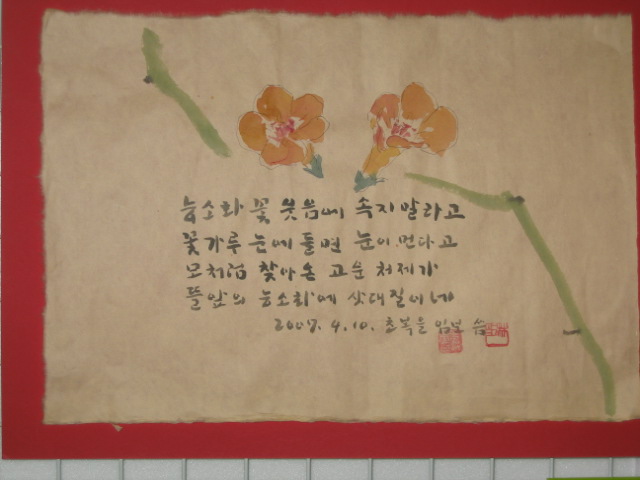 능소화 꽃 웃음에 속지말라고
꽃가루 눈에 들면 눈이 먼다고
모처럼 찾아온 고운 처제가
뜰앞의 능소화에 삿대질이네
2007. 9. 10. 초복을 임보 씀